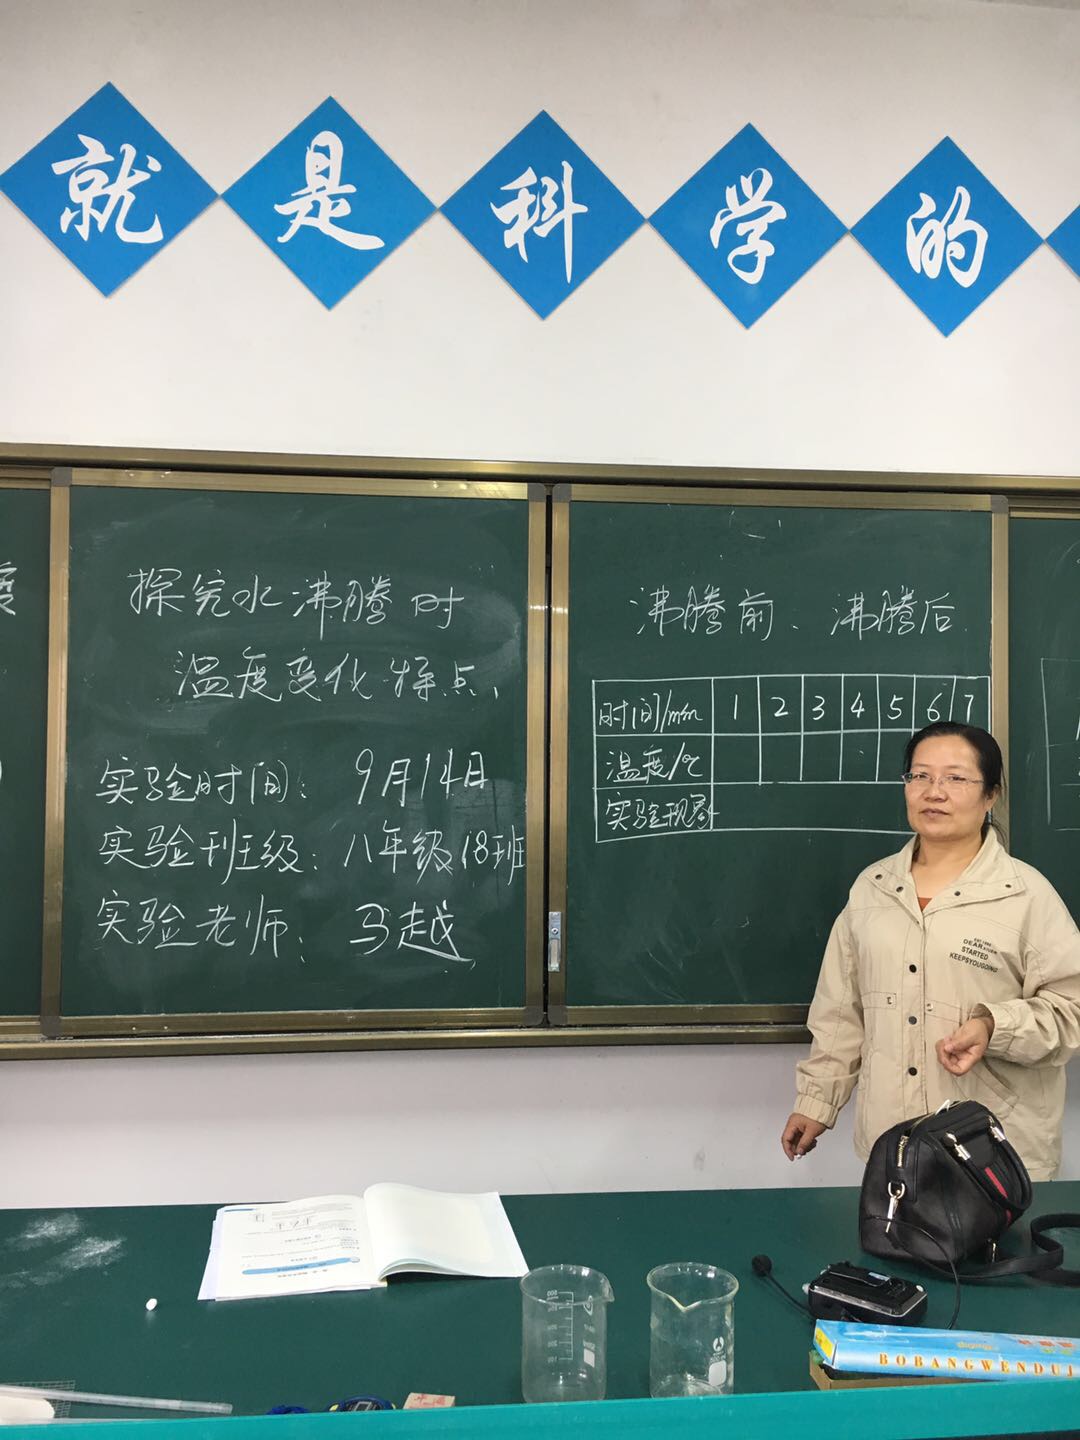 就是科学的
探究水沸腾时
温度变化特点、
实验时间: 9月14日
实验班级: 八年级18班
实验老师: 马越
沸腾前、沸腾后
时间/min 1 2 3 4 5 6 7
温度/℃
实验现象
DEAR
STARTED
KEEPSYOUGOING
BOBANGWENDUJ